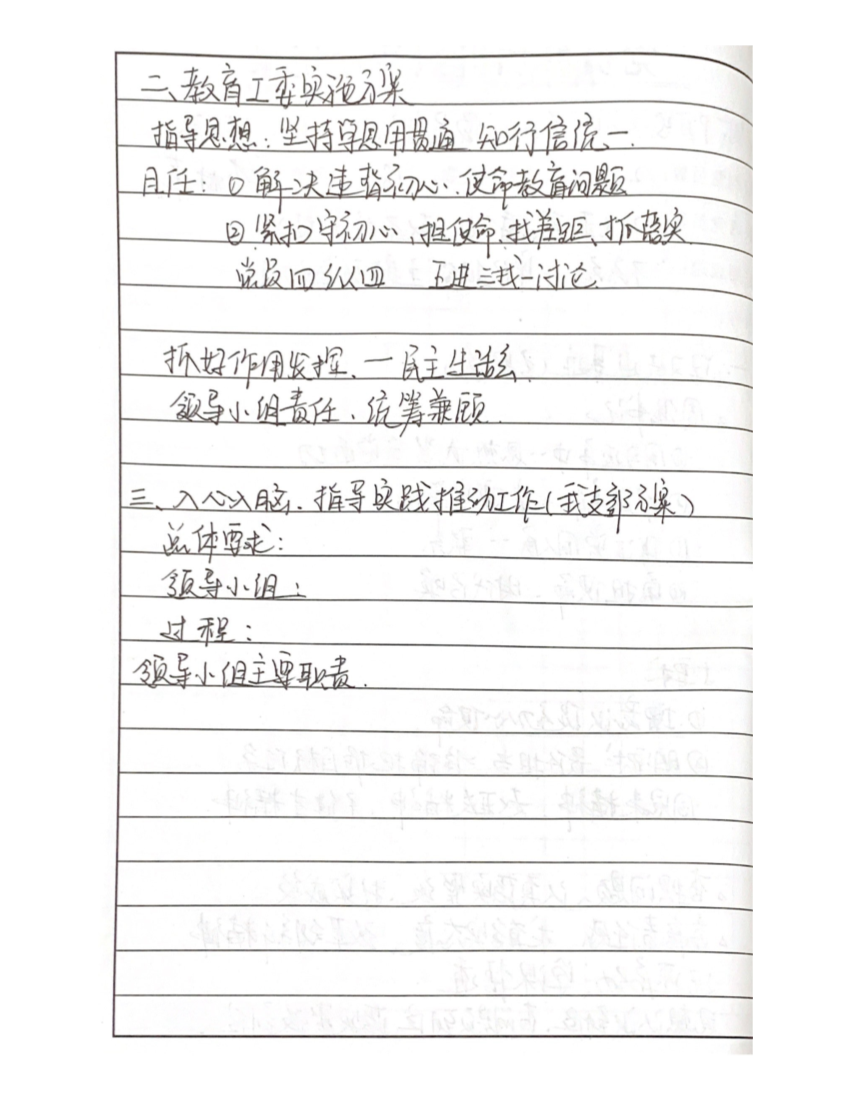 二、教育工委实施方案
指导思想：坚持学思用贯通 知行信统一.
目任：① 解决违背初心、使命教育问题
② 紧扣守初心、担使命、找差距、抓落实
党员四个从四 五进三我一讨论.
抓好作用发挥、一民主生活会.
领导小组责任、统筹兼顾.
三、入心入脑、指导实践推动工作（我支部方案）
总体要求：
领导小组：
过程：
领导小组主要职责.